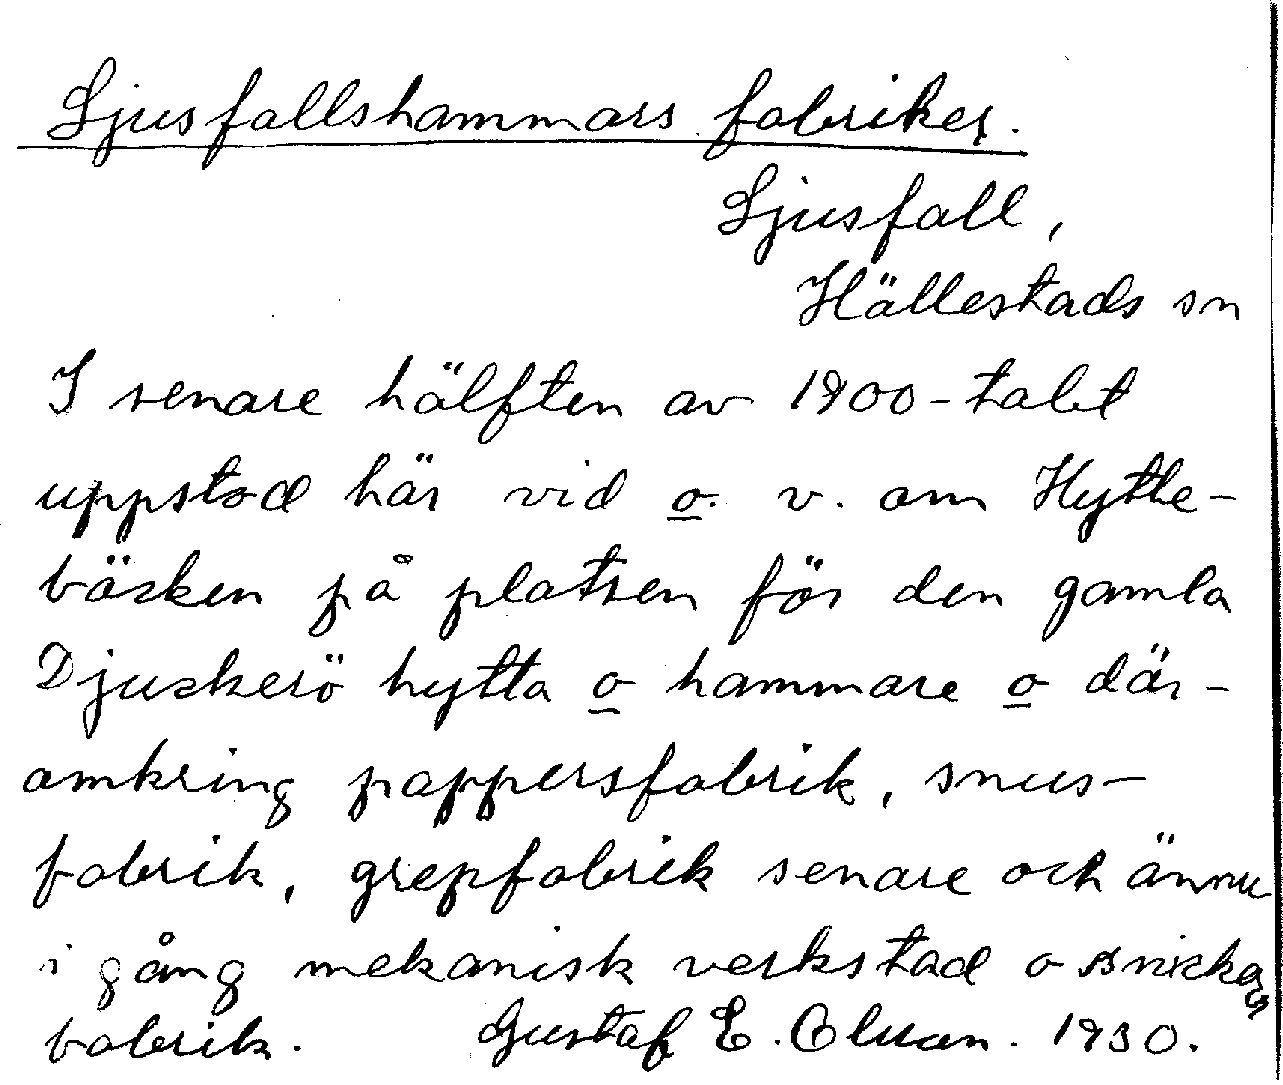 Ljusfallshammars fabriker.
Ljusfall,
Hällestads sn
I senare hälften av 1800-talet
uppstod här vid o. v. om Hytte-
bäcken på platsen för den gamla
Djuckerö hytta o hammare o där-
omkring pappersfabrik, snus-
fabrik, grepfabrik senare och ännu
i gång mekanisk verkstad o snickeri
fabrik. Gustaf E. 1930.